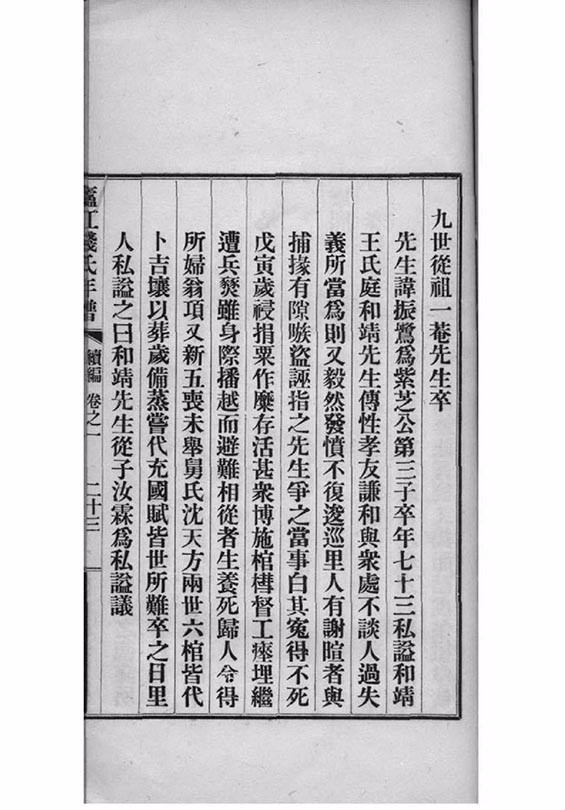 九世從祖一菴先生卒
先生諱振鷺爲紫芝公第三子卒年七十三私謚和靖
王氏庭和靖先生傳性孝友謙和與衆處不談人過失
義所當爲則又毅然發憤不復逡巡里人有謝暄者與
捕掾有隙嗾盜誣指之先生爭之當事白其冤得不死
戊寅歲祲捐粟作糜存活甚衆博施棺槥督工瘞埋繼
遭兵燹雖身際播越而避難相從者生養死歸人令得
所婦翁項又新五喪未舉舅氏沈天方兩世六棺皆代
卜吉壤以葬歲備蒸嘗代充國賦皆世所難卒之日里
人私謚之曰和靖先生從子汝霖爲私謚議
廬江錢氏年譜 續編 卷之一 二十三